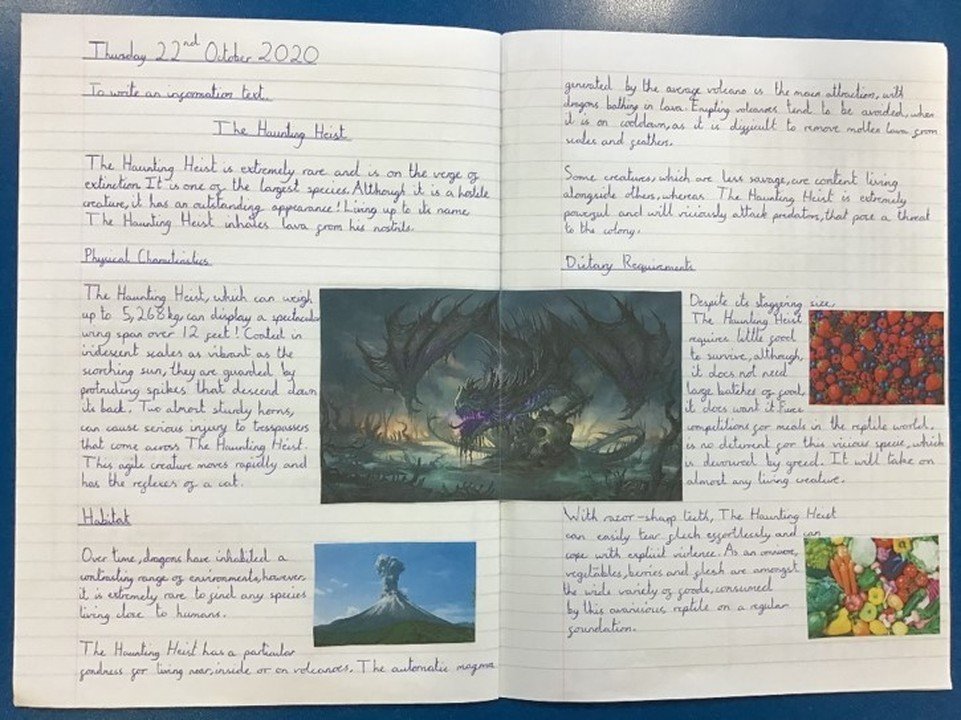 Thursday 22nd October 2020
To write an information text.
The Haunting Heist
The Haunting Heist is extremely rare and is on the verge of
extinction. It is one of the largest species. Although it is a hostile
creature, it has an outstanding appearance! Living up to its name
The Haunting Heist inhales lava from his nostrils.
Physical Characteristics
The Haunting Heist, which can weigh
up to 5,268kg, can display a spectacular
wing span over 12 feet! Coated in
iridescent scales as vibrant as the
scorching sun, they are guarded by
protruding spikes that descend down
its back. Two almost sturdy horns,
can cause serious injury to trespassers
that come across The Haunting Heist.
This agile creature moves rapidly and
has the reflexes of a cat.
Habitat
Over time, dragons have inhabited a
contrasting range of environments, however,
it is extremely rare to find any species
living close to humans.
The Haunting Heist has a particular
fondness for living near, inside or on volcanoes. The automatic magma
generated by the average volcano is the main attraction, with
dragons bathing in lava. Erupting volcanoes tend to be avoided, when
it is on cooldown, as it is difficult to remove molten lava from
scales and feathers.
Some creatures, which are less savage, are content living
alongside others, whereas The Haunting Heist is extremely
powerful and will viciously attack predators, that pose a threat
to the colony.
Dietary Requirements
Despite its staggering size,
The Haunting Heist
requires little food
to survive, although,
it does not need
large batches of food,
it does want it. Fierce
competitions for meals in the reptile world.
is no deterrent for this vicious specie, which
is devoured by greed. It will take on
almost any living creature.
With razor-sharp teeth, The Haunting Heist
can easily tear flesh effortlessly and can
cope with explicit violence. As an omnivore,
vegetables, berries and flesh are amongst
the wide variety of foods, consumed
by this avaricious reptile on a regular
foundation.